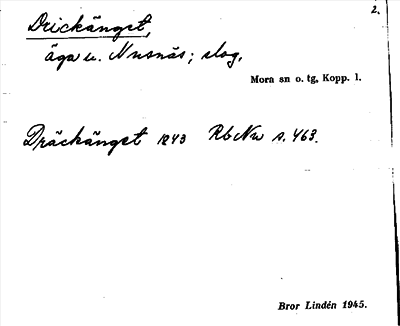 2.
Drickängst,
äga u. Nusnäs; slog.
Mora sn o. tg, Kopp. l.
Dräckängst 1843 RbNw s. 463.
Bror Lindén 1945.